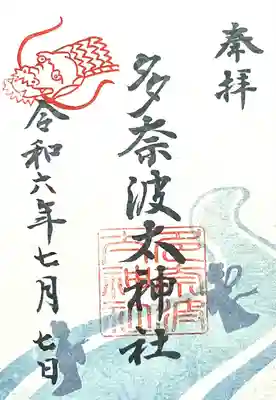 奉拝
多奈波太神社
令和六年七月七日